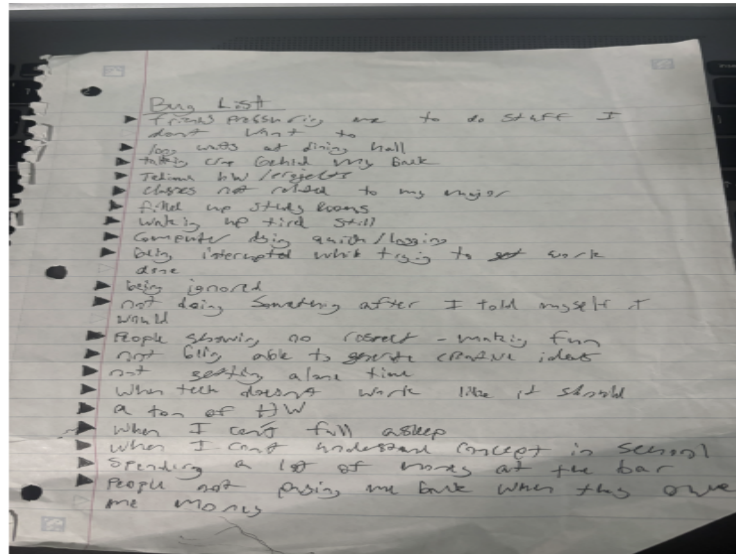 Bug List
friends pressuring me to do stuff I
don't want to
long waits at dining hall
talking crap behind my back
Tedious hW/projects
classes not related to my major
filled up study rooms
waking up tired still
Computer dying quick/lagging
being interrupted while trying to get work
done
being ignored
not doing something after I told myself I
would
People showing no respect - making fun
not being able to generate creative ideas
not getting alone time
When tech doesn't work like it should
a ton of HW
When I can't fall asleep
When I can't understand concept in school
Spending a lot of money at the bar
People not paying me back when they owe
me money